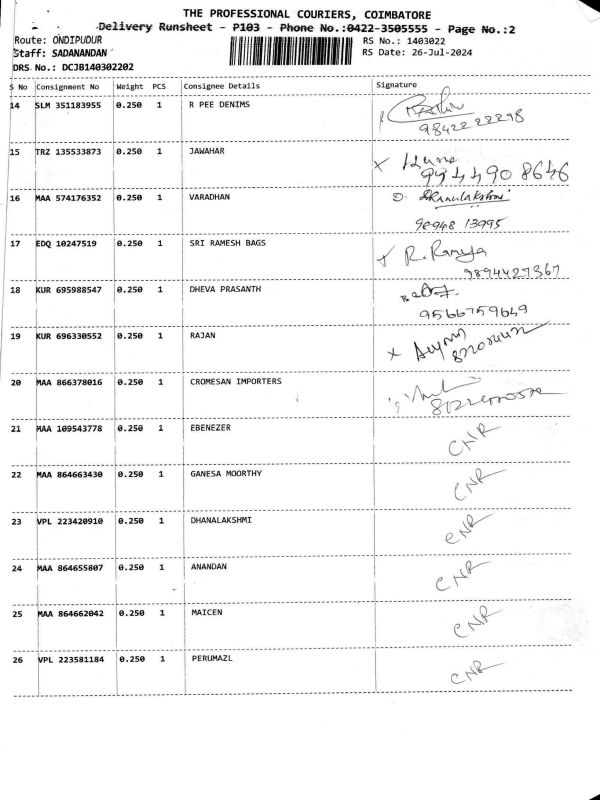 THE PROFESSIONAL COURIERS, COIMBATORE
Delivery Runsheet - P103 - Phone No.:0422-3505555 - Page No.:2
Route: ONDIPUDUR RS No.: 1403022
Staff: SADANANDAN RS Date: 26-Jul-2024
DRS No.: DCJB140302202
S No Consignment No Weight PCS Consignee Details Signature
14 SLM 351183955 0.250 1 R PEE DENIMS
9842222298
15 TRZ 135533873 0.250 1 JAWAHAR
16 MAA 574176352 0.250 1 VARADHAN
98948 13995
17 EDQ 10247519 0.250 1 SRI RAMESH BAGS R. Ramya
9894427367
18 KUR 695988547 0.250 1 DHEVA PRASANTH
9566759649
19 KUR 696330552 0.250 1 RAJAN
20 MAA 866378016 0.250 1 CROMESAN IMPORTERS
21 MAA 109543778 0.250 1 EBENEZER CNR
22 MAA 864663430 0.250 1 GANESA MOORTHY CNR
23 VPL 223420910 0.250 1 DHANALAKSHMI CNR
24 MAA 864655807 0.250 1 ANANDAN CNR
25 MAA 864662042 0.250 1 MAICEN CNR
26 VPL 223581184 0.250 1 PERUMAZL CNR